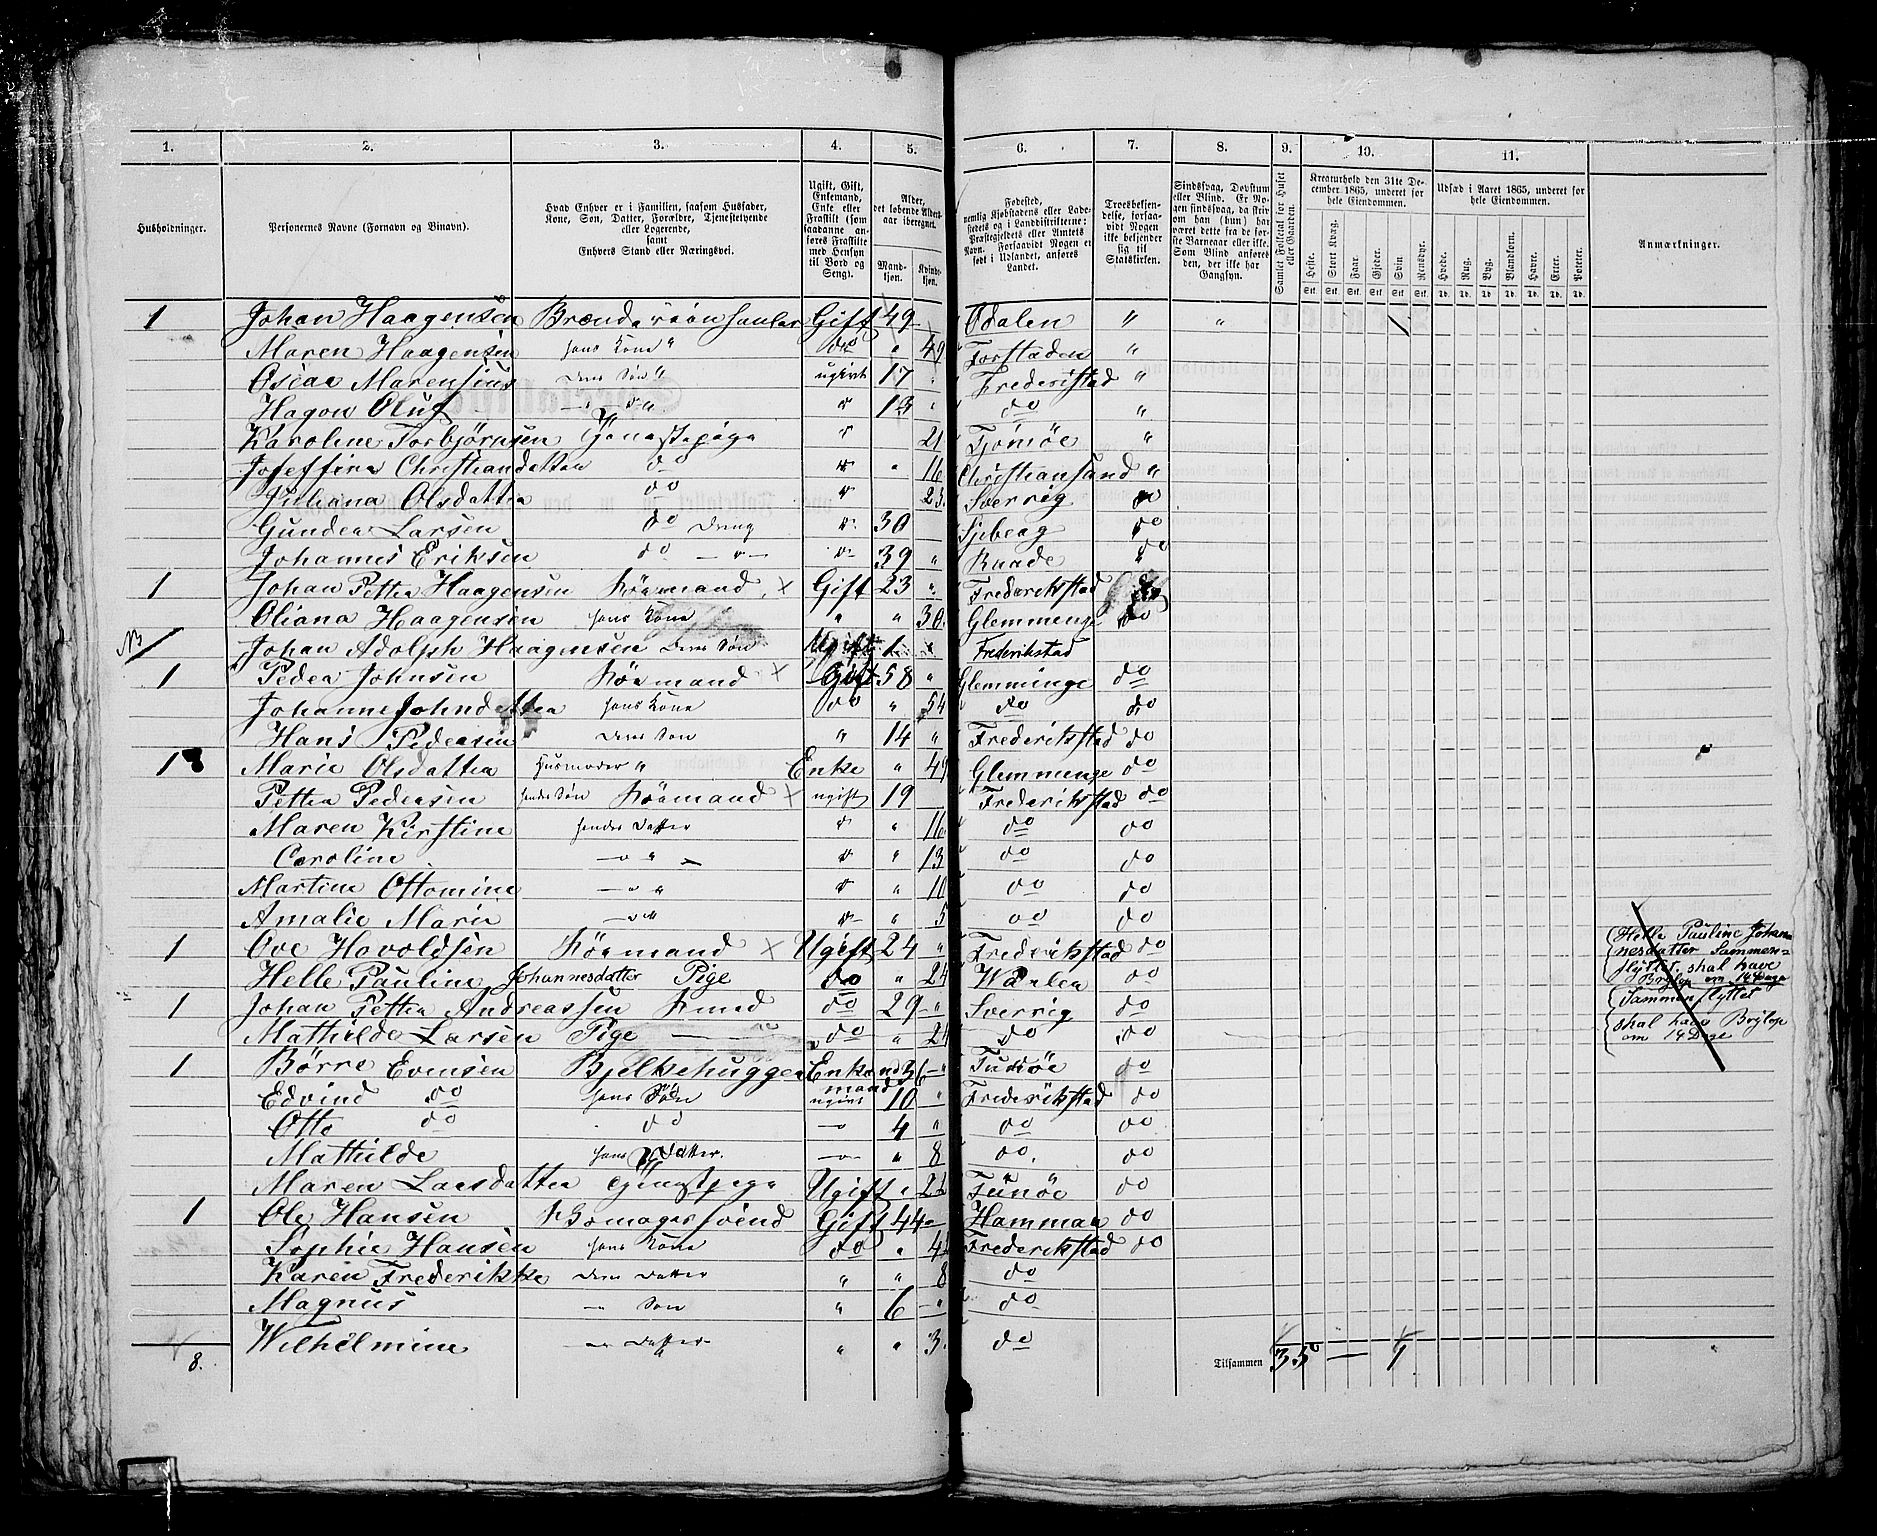 1. 2. 3. 4. 5. 6. 7. 8. 9. 10. 11.
Husholdninger.
Personernes Navne (Fornavn og Binavn).
Hvad Enhver er i Familien, saasom Husfader, Kone, Søn, Datter, Forældre, Tjenestetyende eller Logerende, samt Enhvers Stand eller Næringsvei.
Ugift, Gift, Enkemand, Enke eller Fraskilt (som saadanne anføres Fraskilte med Hensyn til Bord og Seng).
Alder, det løbende Aldersaar iberegnet.
Mandkjøn. Kvindekjøn.
Fødested, nemlig Kjøbstadens eller Ladestedets og i Landdistrikterne: Præstegjeldets eller Amtets Navn. Forsaavidt Nogen er født i Udlandet, anføres Landet.
Troesbekjendelse, forsaavidt Nogen ikke bekjender sig til Statskirken.
Sindssvag, Døvstum eller Blind. Er Nogen sindssvag, da skriv om han (hun) har været dette fra de første Barneaar eller ikke. Som Blind anføres den, der ikke har Gangsyn.
Samlet Folketal for Huset eller Gaarden.
Kreaturhold den 31te December 1865, underet for hele Eiendommen.
Heste. Stort Kvæg. Faar. Gjeder. Svin. Rensdyr.
Udsæd i Aaret 1865, underet for hele Eiendommen.
Hvede. Rug. Byg. Blandkorn. Havre. Erter. Poteter.
Anmærkninger.
1 Johan Haagensen Gift 49 Odalen "
Maren Haagensen hans Kone " do " 49 Forstaden "
Oscar Marensius Deres Søn " ugivt 17 " Frederistad "
Hagon Oluf 13 do "
Karoline Torbjørnsen 21 Tjømøe "
Joseffine Christiandatter do " 16 Christiansand "
Juliana Olsdatter do 23 Sverrig do
Gunder Larsen do Dreng 30 do
Johannes Eriksen do 39 " Raade do
1 Johan Petter Haagensen × Gift 23 " Frederikstad
Oliana Haagensen hans Kone " " 30 Glemmenge do
NB Johan Adolph Haagensen Deres Søn Ugift 1 " Frederikstad
1 Peder Johnsen × Gift 58 " Glemminge do
Johanne Johndatter hans Kone do " 54 do do
Hans Pedersen Deres Søn " 14 " Frederikstad do
1 Marie Olsdatter Husmoder " Enke " 49 Glemmenge do
Petter Pedersen hendes Søn × ugift 19 Frederikstad do
Maren Kirstine hendes Datter " 16 do do
Caroline " 13 do do
Martine Ottomine " 10 do do
Amalie Marie " 5 do do
1 Ove Havoldsen × Ugift 24 " Frederikstad do
Helle Pauline Johannesdatter Pige do " 24 do
1 Johan Petter Andreassen Smed do 29 " Sverrig do
Mathilde Larsen Pige do " do do
1 Børre Evensen Bjelkehugger Enkemand 36 " do
Edvind do hans Søn ugivt 10 " Frederikstad do
Otto do do 4 " do do
Mathilde hans Datter " 8 do do
Maren Larsdatter Ugift " do
1 Ole Hansen Gift 44 " Hammar do
Sophie Hansen hans Kone do " Frederikstad do
Karen Frederikke Deres Datter " " 8 do
Magnus Søn " 6 " do
Wilhelmine Datter " " 3 do
8.
Tilsammen 35 — 1
Helle Pauline Johannesdatter Sammenflyttet skal have Brylop om 14 Dage
Sammenflyttet skal have Brylop om 14 Dage